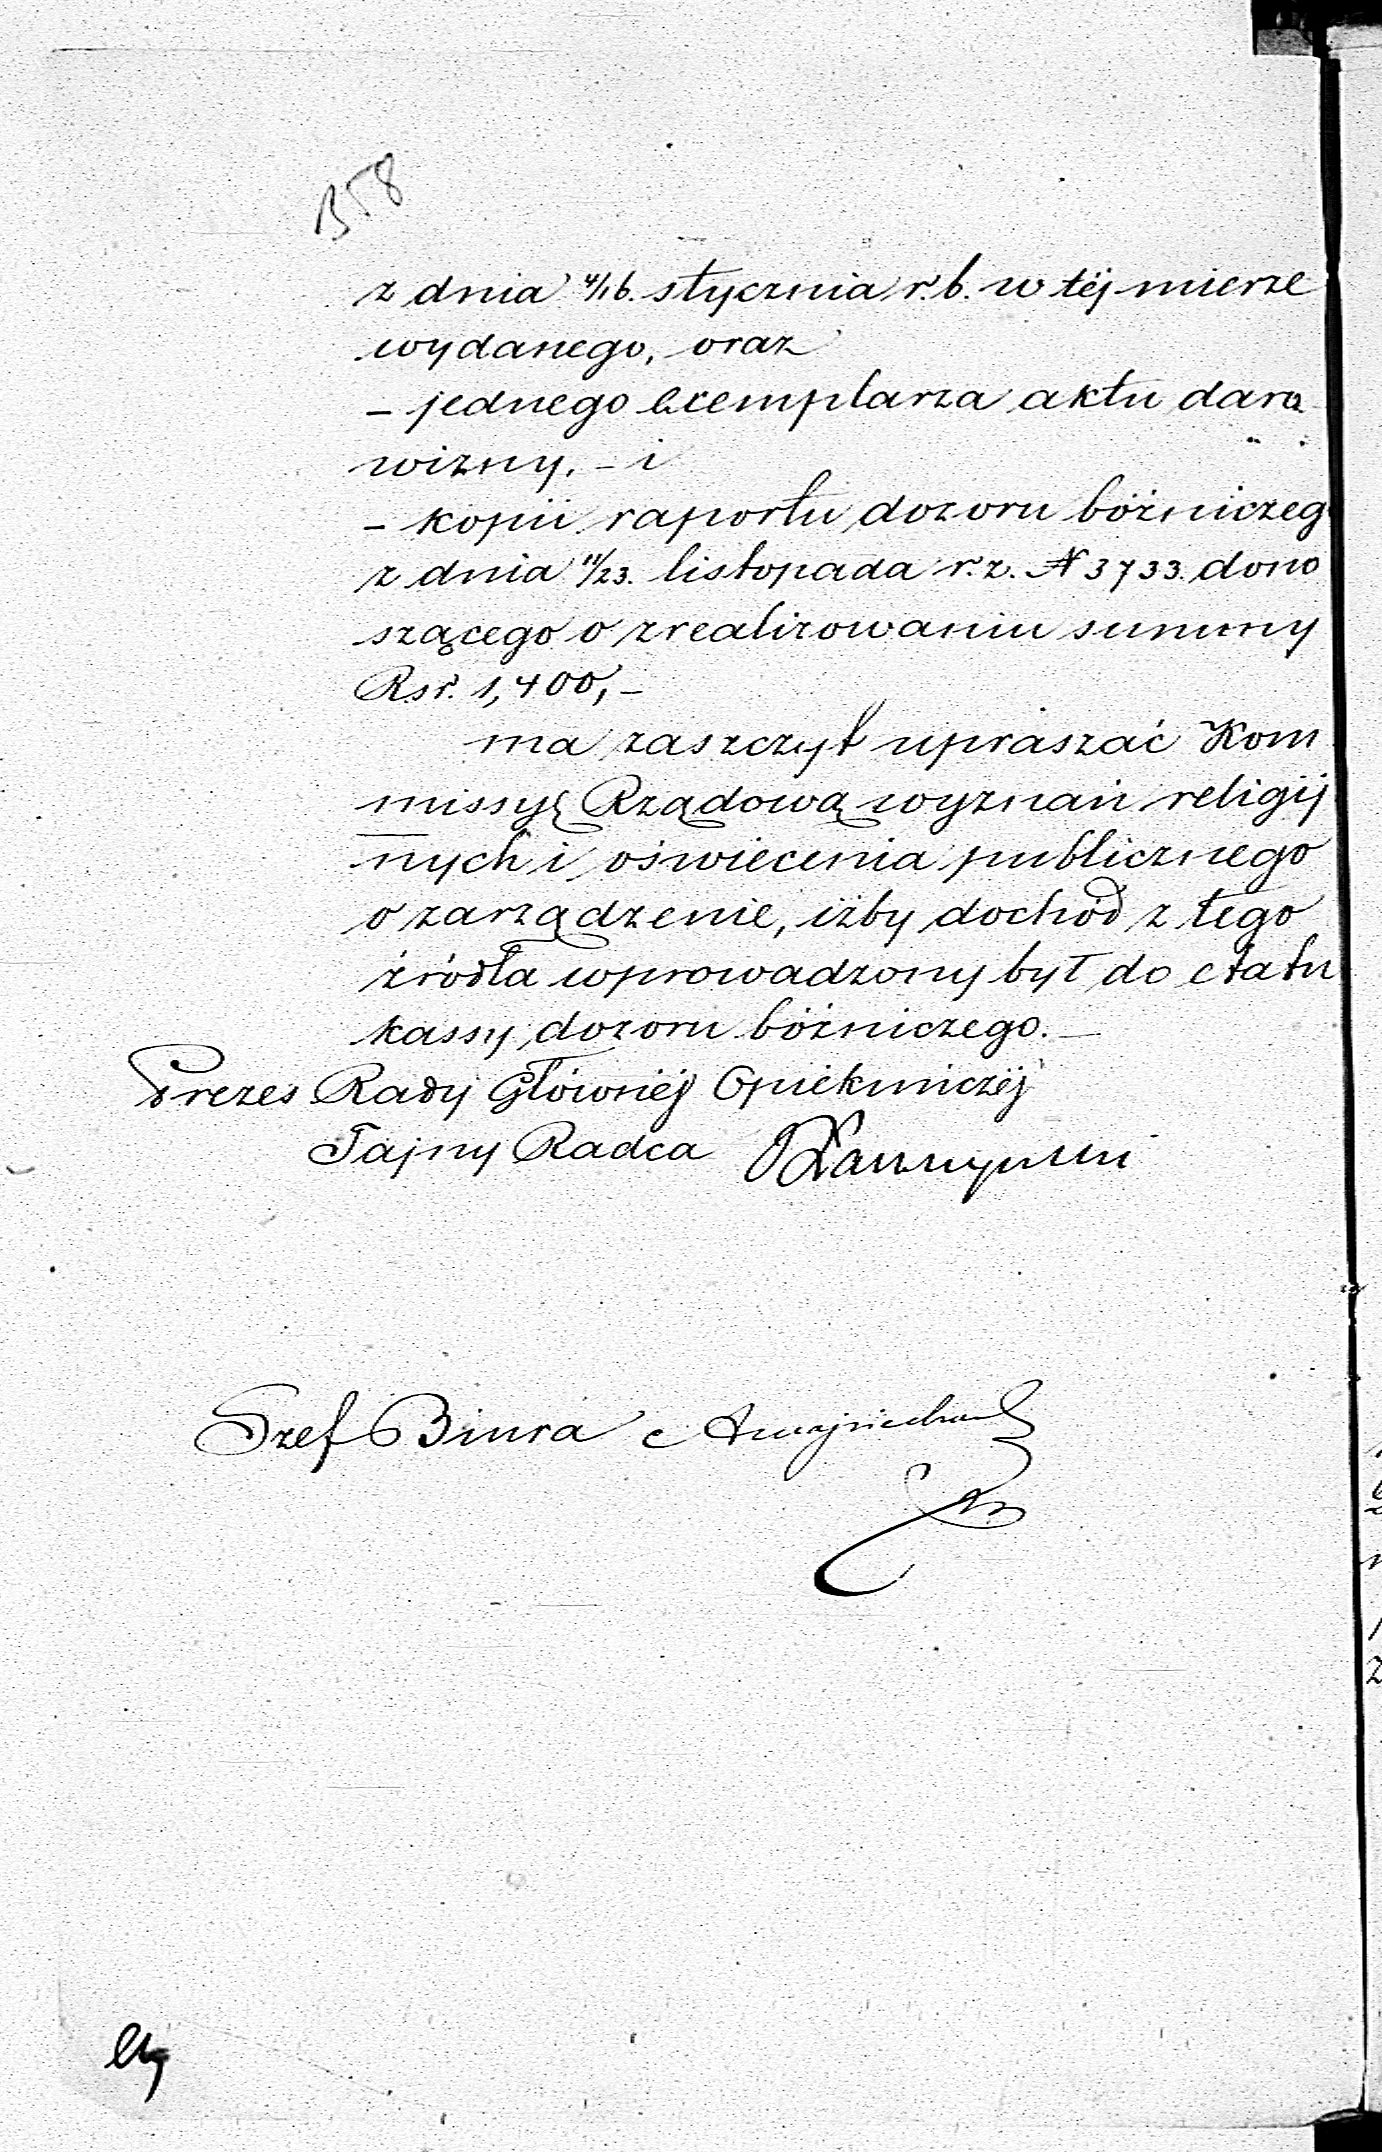 z dnia 4/16. stycznia r. b. w téj mierze
wydanego, oraz
– jednego exemplarza aktu daro
wizny, – i
– kopii raportu dozoru bóżniczeg
z dnia 11/23. listopada r. z. N 3733. dono
szącego o zrealizowaniu summy
Rsr. 1,400, –
ma zaszczyt upraszać Kom
missyę Rządową wyznań religij
nych i oświecenia publicznego
o zarządzenie, iżby dochód z tego
źródła wprowadzony był do etatu
kassy dozoru bóżniczego. –
Prezes Rady Głównéj Opiekuńczéj
Tajny Radca
Szef Biura